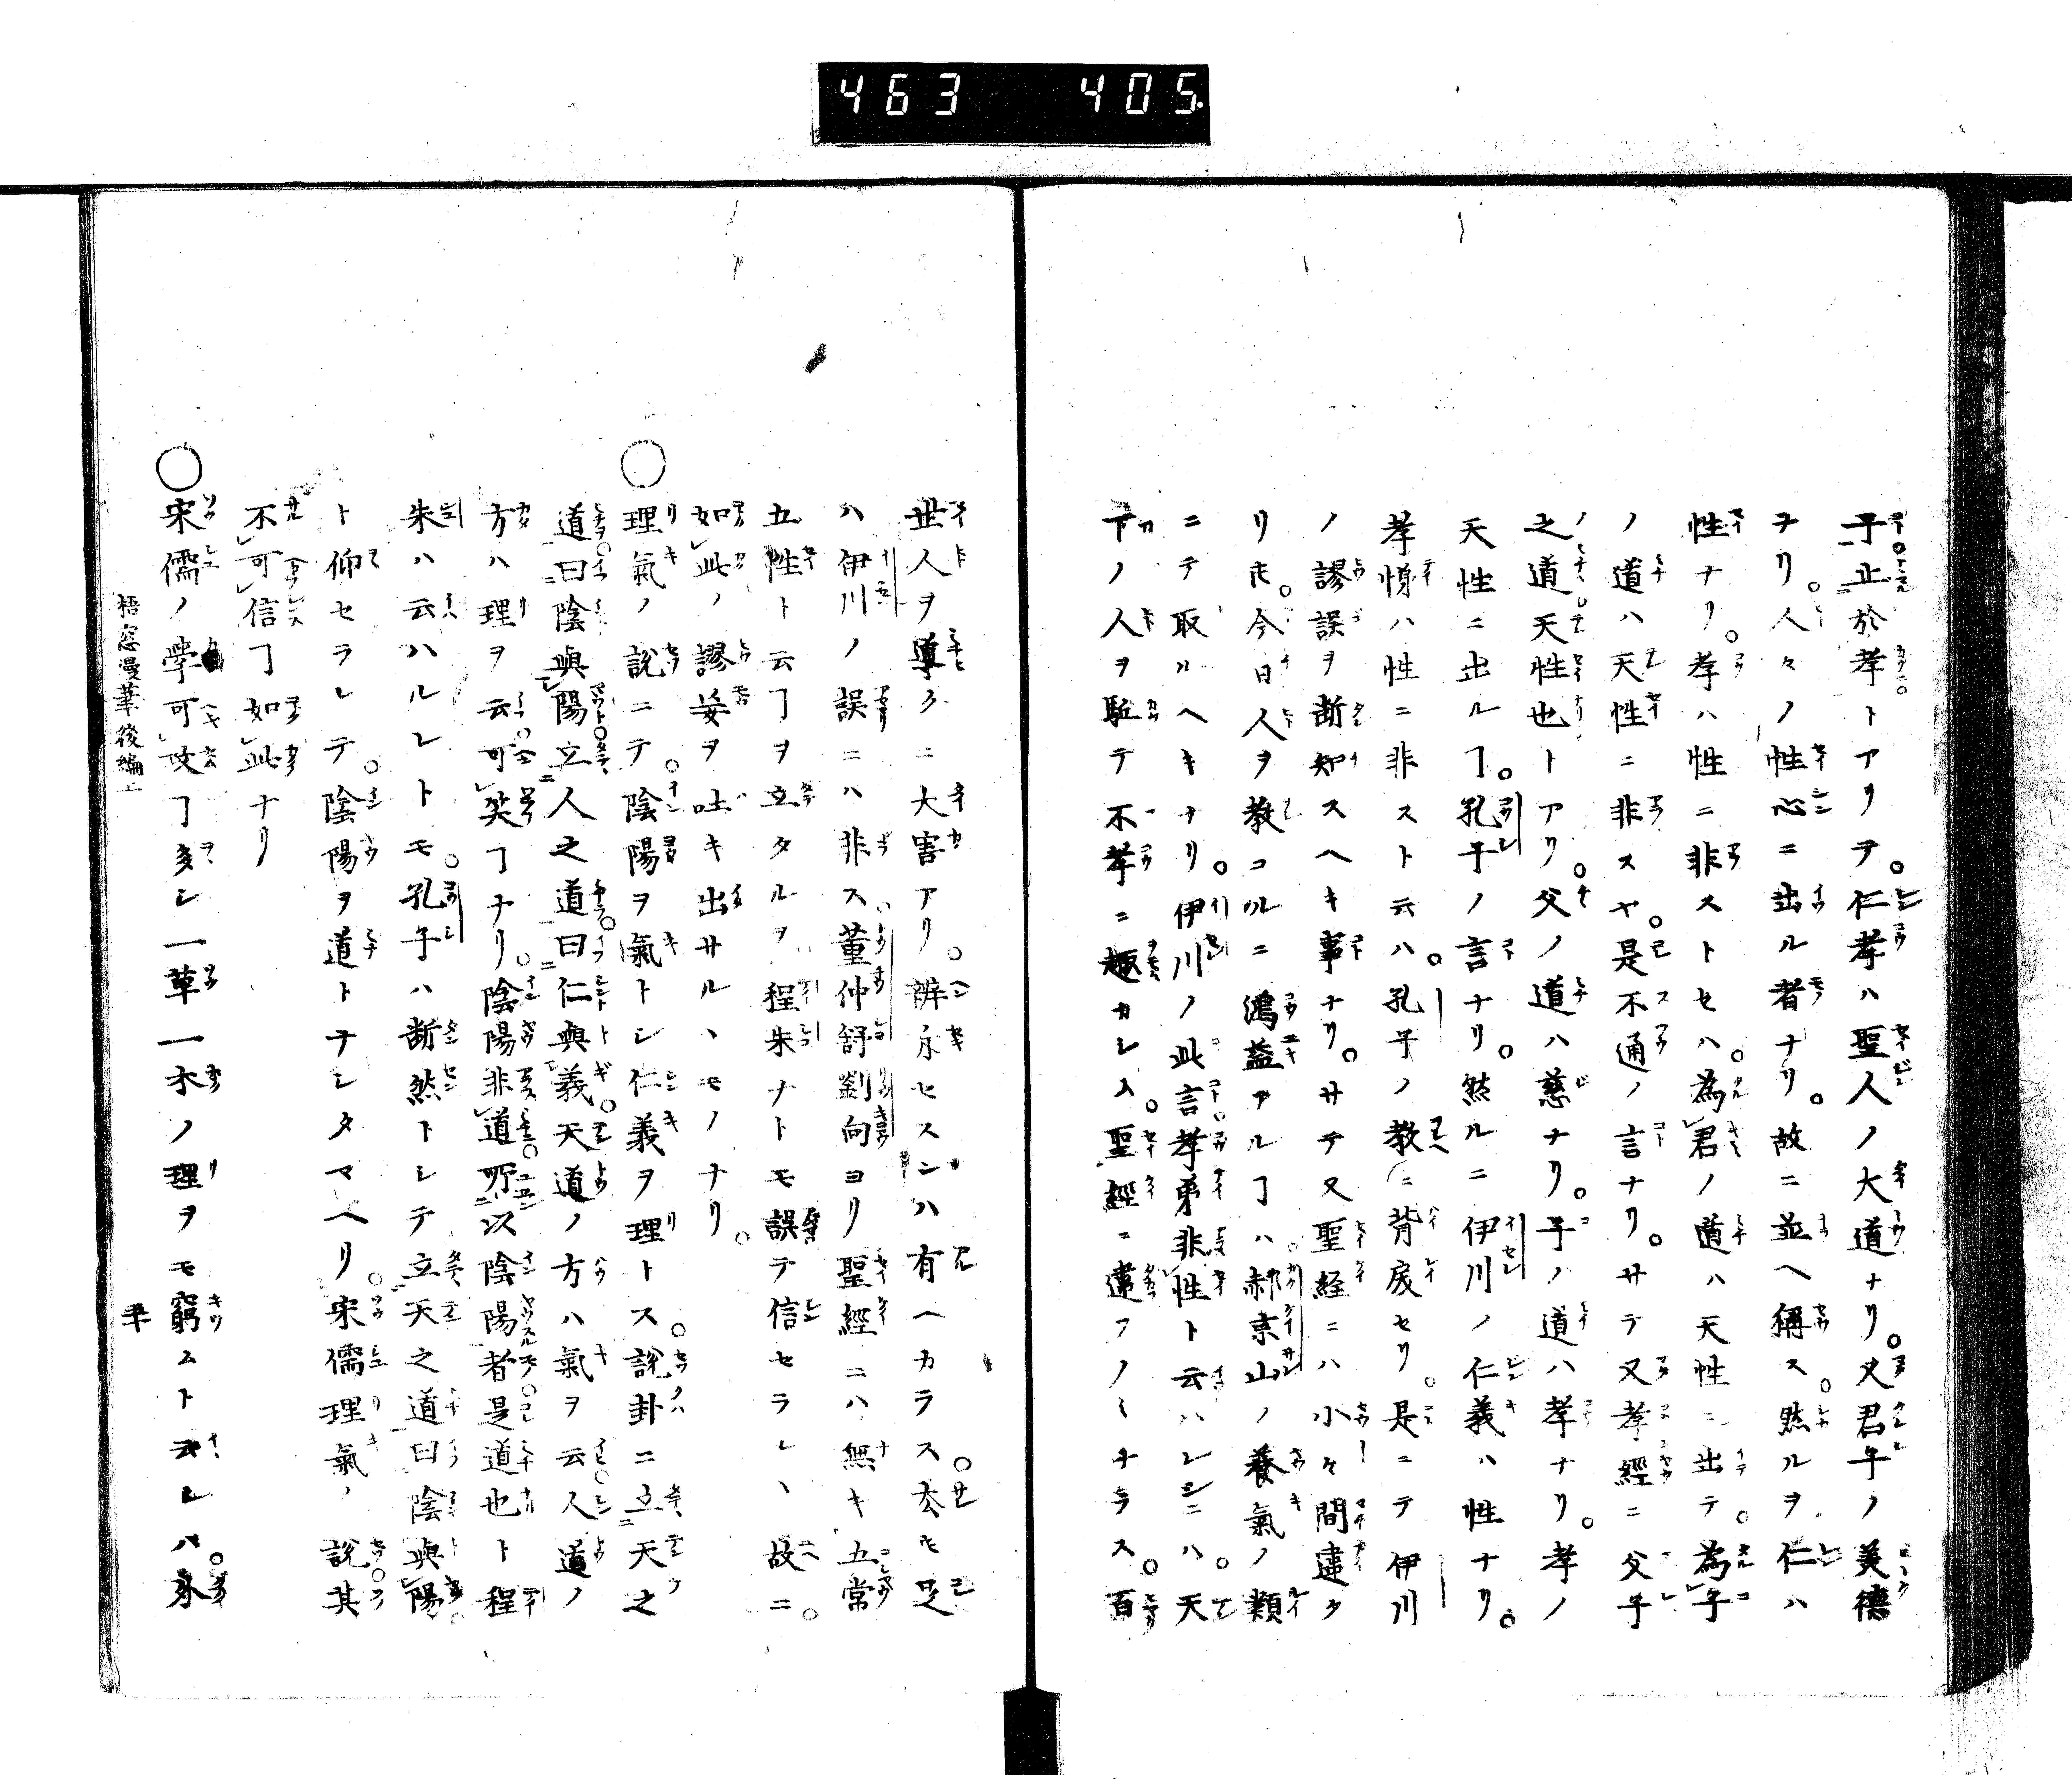 463 405
子止於孝トアリテ。仁孝ハ聖人ノ大道ナリ。又君子ノ美德
ナリ。人々ノ性心ニ出ル者ナリ。故ニ並ヘ稱ス。然ルヲ仁ハ
性ナリ。孝ハ性ニ非ストセハ。為君ノ道ハ天性ニ出テ。為子
ノ道ハ天性ニ非スヤ。是不通ノ言ナリ。サテ又孝經ニ父子
之道天性也トアリ。父ノ道ハ慈ナリ。子ノ道ハ孝ナリ。孝ノ
天性ニ出ルヿ。孔子ノ言ナリ。然ルニ伊川ノ仁義ハ性ナリ。
孝悌ハ性ニ非スト云ハ。孔子ノ教ニ背戾セリ。是ニテ伊川
ノ謬誤ヲ断知スヘキ事ナリ。サテ又聖経ニハ小々間違タ
リ𪜈。今日人ヲ教コルニ鴻益アルヿハ。赫京山ノ養氣ノ類
ニテ取ルヘキナリ。伊川ノ此言孝弟非性ト云ハレシニハ。天
下ノ人ヲ駈テ不孝ニ趣カシム。聖經ニ違フノミナラス。百
世人ヲ導クニ大害アリ。辨永セスンハ有ヘカラス。太モ是
ハ伊川ノ誤ニハ非ス。董仲舒劉向ヨリ聖經ニハ無キ五常
五性ト云ヿヲ立タルヲ。程朱ナトモ誤テ信セラレ、故ニ。
如此ノ謬妄ヲ吐キ出サル、モノナリ。
○理氣ノ說ニテ。陰陽ヲ氣トシ仁義ヲ理トス。說卦ニ立天之
道曰陰與陽立人之道曰仁與義。天道ノ方ハ氣ヲ云人道ノ
方ハ理ヲ云。可笑ヿナリ。陰陽非道所以陰陽者是道也ト程
朱ハ云ハルレトモ。孔子ハ断然トシテ立天之道曰陰與陽。
ト仰セラレテ。陰陽ヲ道トナシタマヘリ。宋儒理氣ノ說其
不可信ヿ如此ナリ
○宋儒ノ學可攻ヿ多シ一草一木ノ理ヲモ窮ムト云レハ。
梧窓漫筆後編上